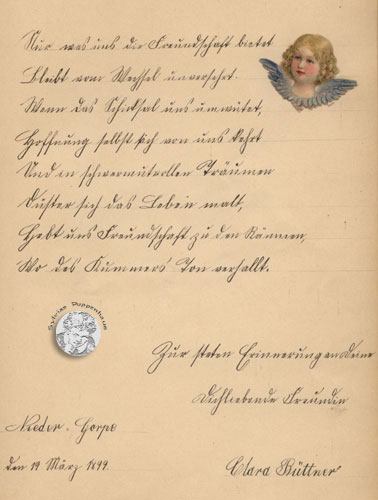 Nur was uns die Freundschaft bietet
Bleibt vom Wechsel unversehrt.
Wenn das Schicksal uns umwütet,
Hoffnung selbst sich von uns kehrt
Und in schwermutvollen Träumen
Düster sich das Leben malt,
Hebt uns Freundschaft zu den Räumen,
Wo des Kummers Ton verhallt.
Sylvias Puppenhaus
Zur steten Erinnerung an Deine
Dichliebende Freundin
Nieder-
den 19 März 1899.
Clara Büttner